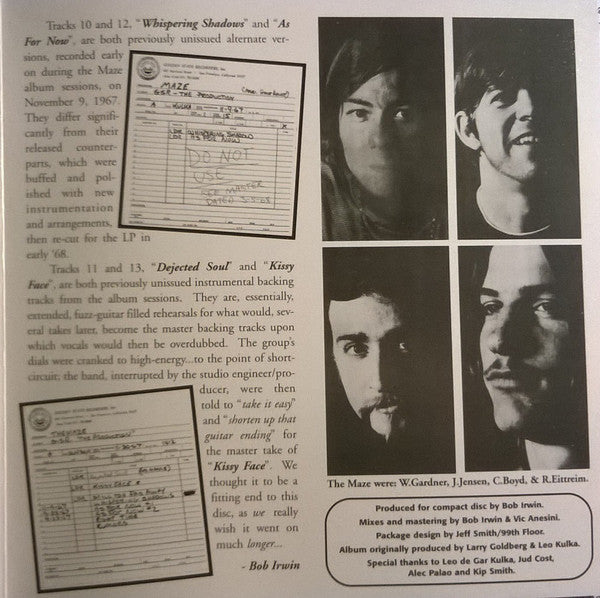 Tracks 10 and 12, "Whispering Shadows" and "As
For Now", are both previously unissued alternate ver-
sions, recorded early
on during the Maze
album sessions, on
November 9, 1967.
They differ signifi-
cantly from their
released counter-
parts, which were
buffed and pol-
ished with new
instrumentation
and arrangements,
then re-cut for the LP in
early '68.
GOLDEN STATE RECORDERS, Inc.
MAZE
GSR - THE PRODUCTION
A KULKA 11-9-67
LDR WHISPERING SHADOW
LDR AS FOR NOW
DO NOT
USE
SEE MASTER
DATED
Tracks 11 and 13, "Dejected Soul" and "Kissy
Face", are both previously unissued instrumental backing
tracks from the album sessions. They are, essentially,
extended, fuzz-guitar filled rehearsals for what would, sev-
eral takes later, become the master backing tracks upon
which vocals would then be overdubbed. The group's
dials were cranked to high-energy...to the point of short-
circuit; the band, interrupted by the studio engineer/pro-
ducer, were then
told to "take it easy"
and "shorten up that
guitar ending" for
the master take of
"Kissy Face". We
thought it to be a
fitting end to this
disc, as we really
wish it went on
much longer...
- Bob Irwin
GOLDEN STATE RECORDERS, Inc.
THE MAZE
GSR THE PRODUCTION
LDR KISSY FACE
AS FOR NOW #2
The Maze were: W.Gardner, J.Jensen, C.Boyd, & R.Eittreim.
Produced for compact disc by Bob Irwin.
Mixes and mastering by Bob Irwin & Vic Anesini.
Package design by Jeff Smith/99th Floor.
Album originally produced by Larry Goldberg & Leo Kulka.
Special thanks to Leo de Gar Kulka, Jud Cost,
Alec Palao and Kip Smith.